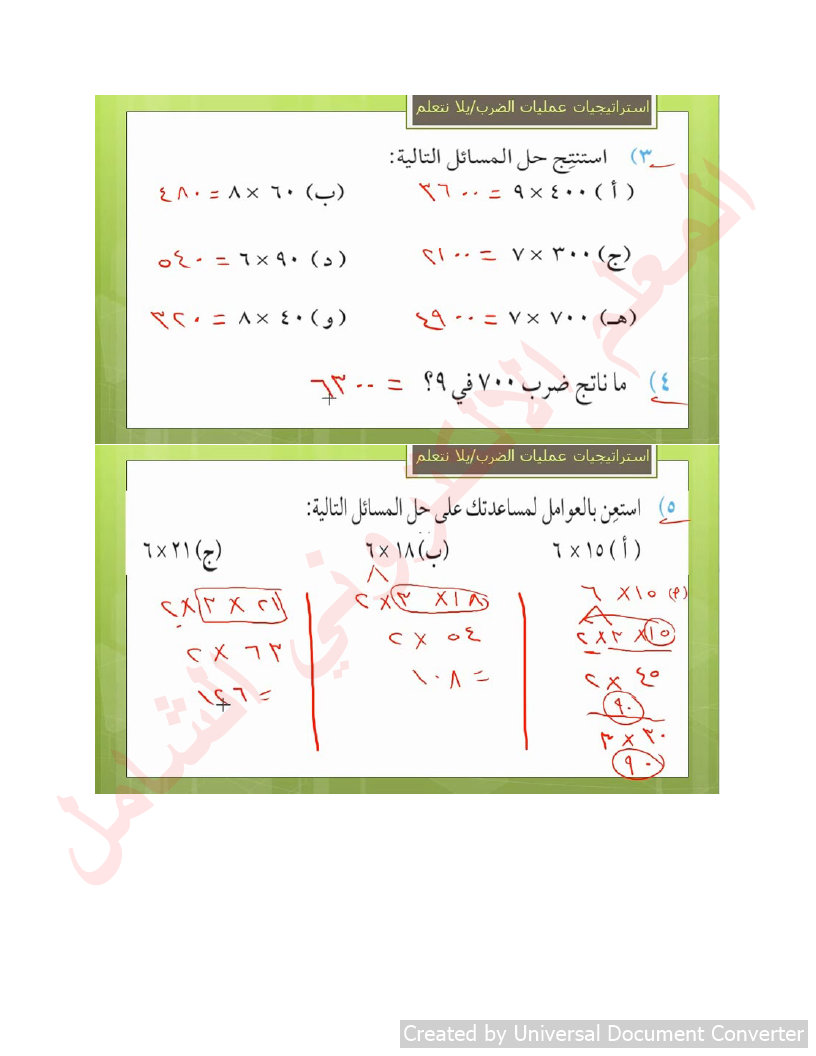 استراتيجيات عمليات الضرب/يلا نتعلم
٣) استنتِج حل المسائل التالية:
( أ ) ٤٠٠ × ٩ = ٣٦٠٠ (ب) ٦٠ × ٨ = ٤٨٠
(ج) ٣٠٠ × ٧ = ٢١٠٠ ( د ) ٩٠ × ٦ = ٥٤٠
(هـ) ٧٠٠ × ٧ = ٤٩٠٠ ( و ) ٤٠ × ٨ = ٣٢٠
٤) ما ناتج ضرب ٧٠٠ في ٩؟ = ٦٣٠٠
استراتيجيات عمليات الضرب/يلا نتعلم
٥) استعِن بالعوامل لمساعدتك على حل المسائل التالية:
( أ ) ١٥ × ٦ (ب) ١٨ × ٦ (ج) ٢١ × ٦
(٩) ١٥ × ٦
١٥ × ٣ × ٢
٤٥ × ٢
٩٠
٣٠ × ٣
٩٠
١٨ × ٣ × ٢
٥٤ × ٢
= ١٠٨
٢١ × ٣ × ٢
٦٣ × ٢
= ١٢٦
المعلم الالكتروني الشامل
Created by Universal Document Converter